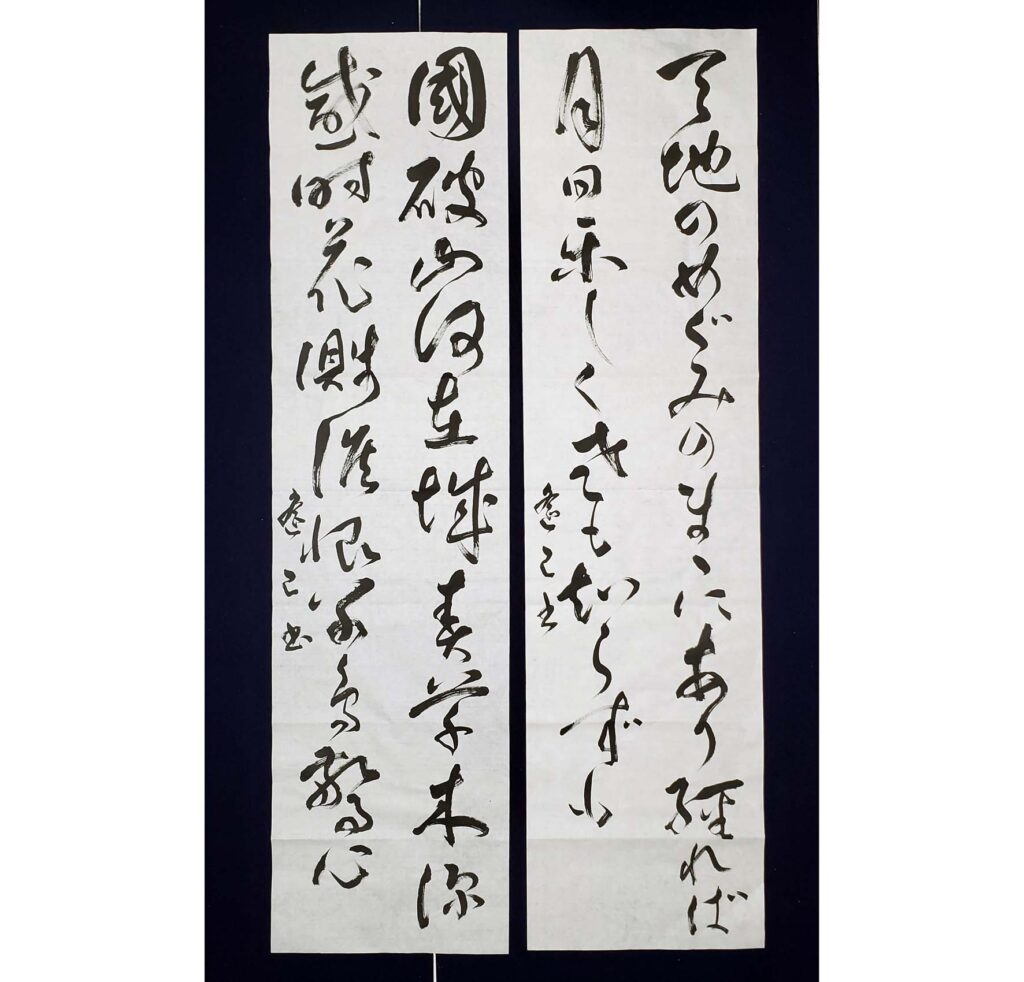 天地のめぐみのまゝにあり経れば
月日楽しく老も知らずも
己書
國破山河在城春草木深
感時花濺涙恨別鳥驚心
己書